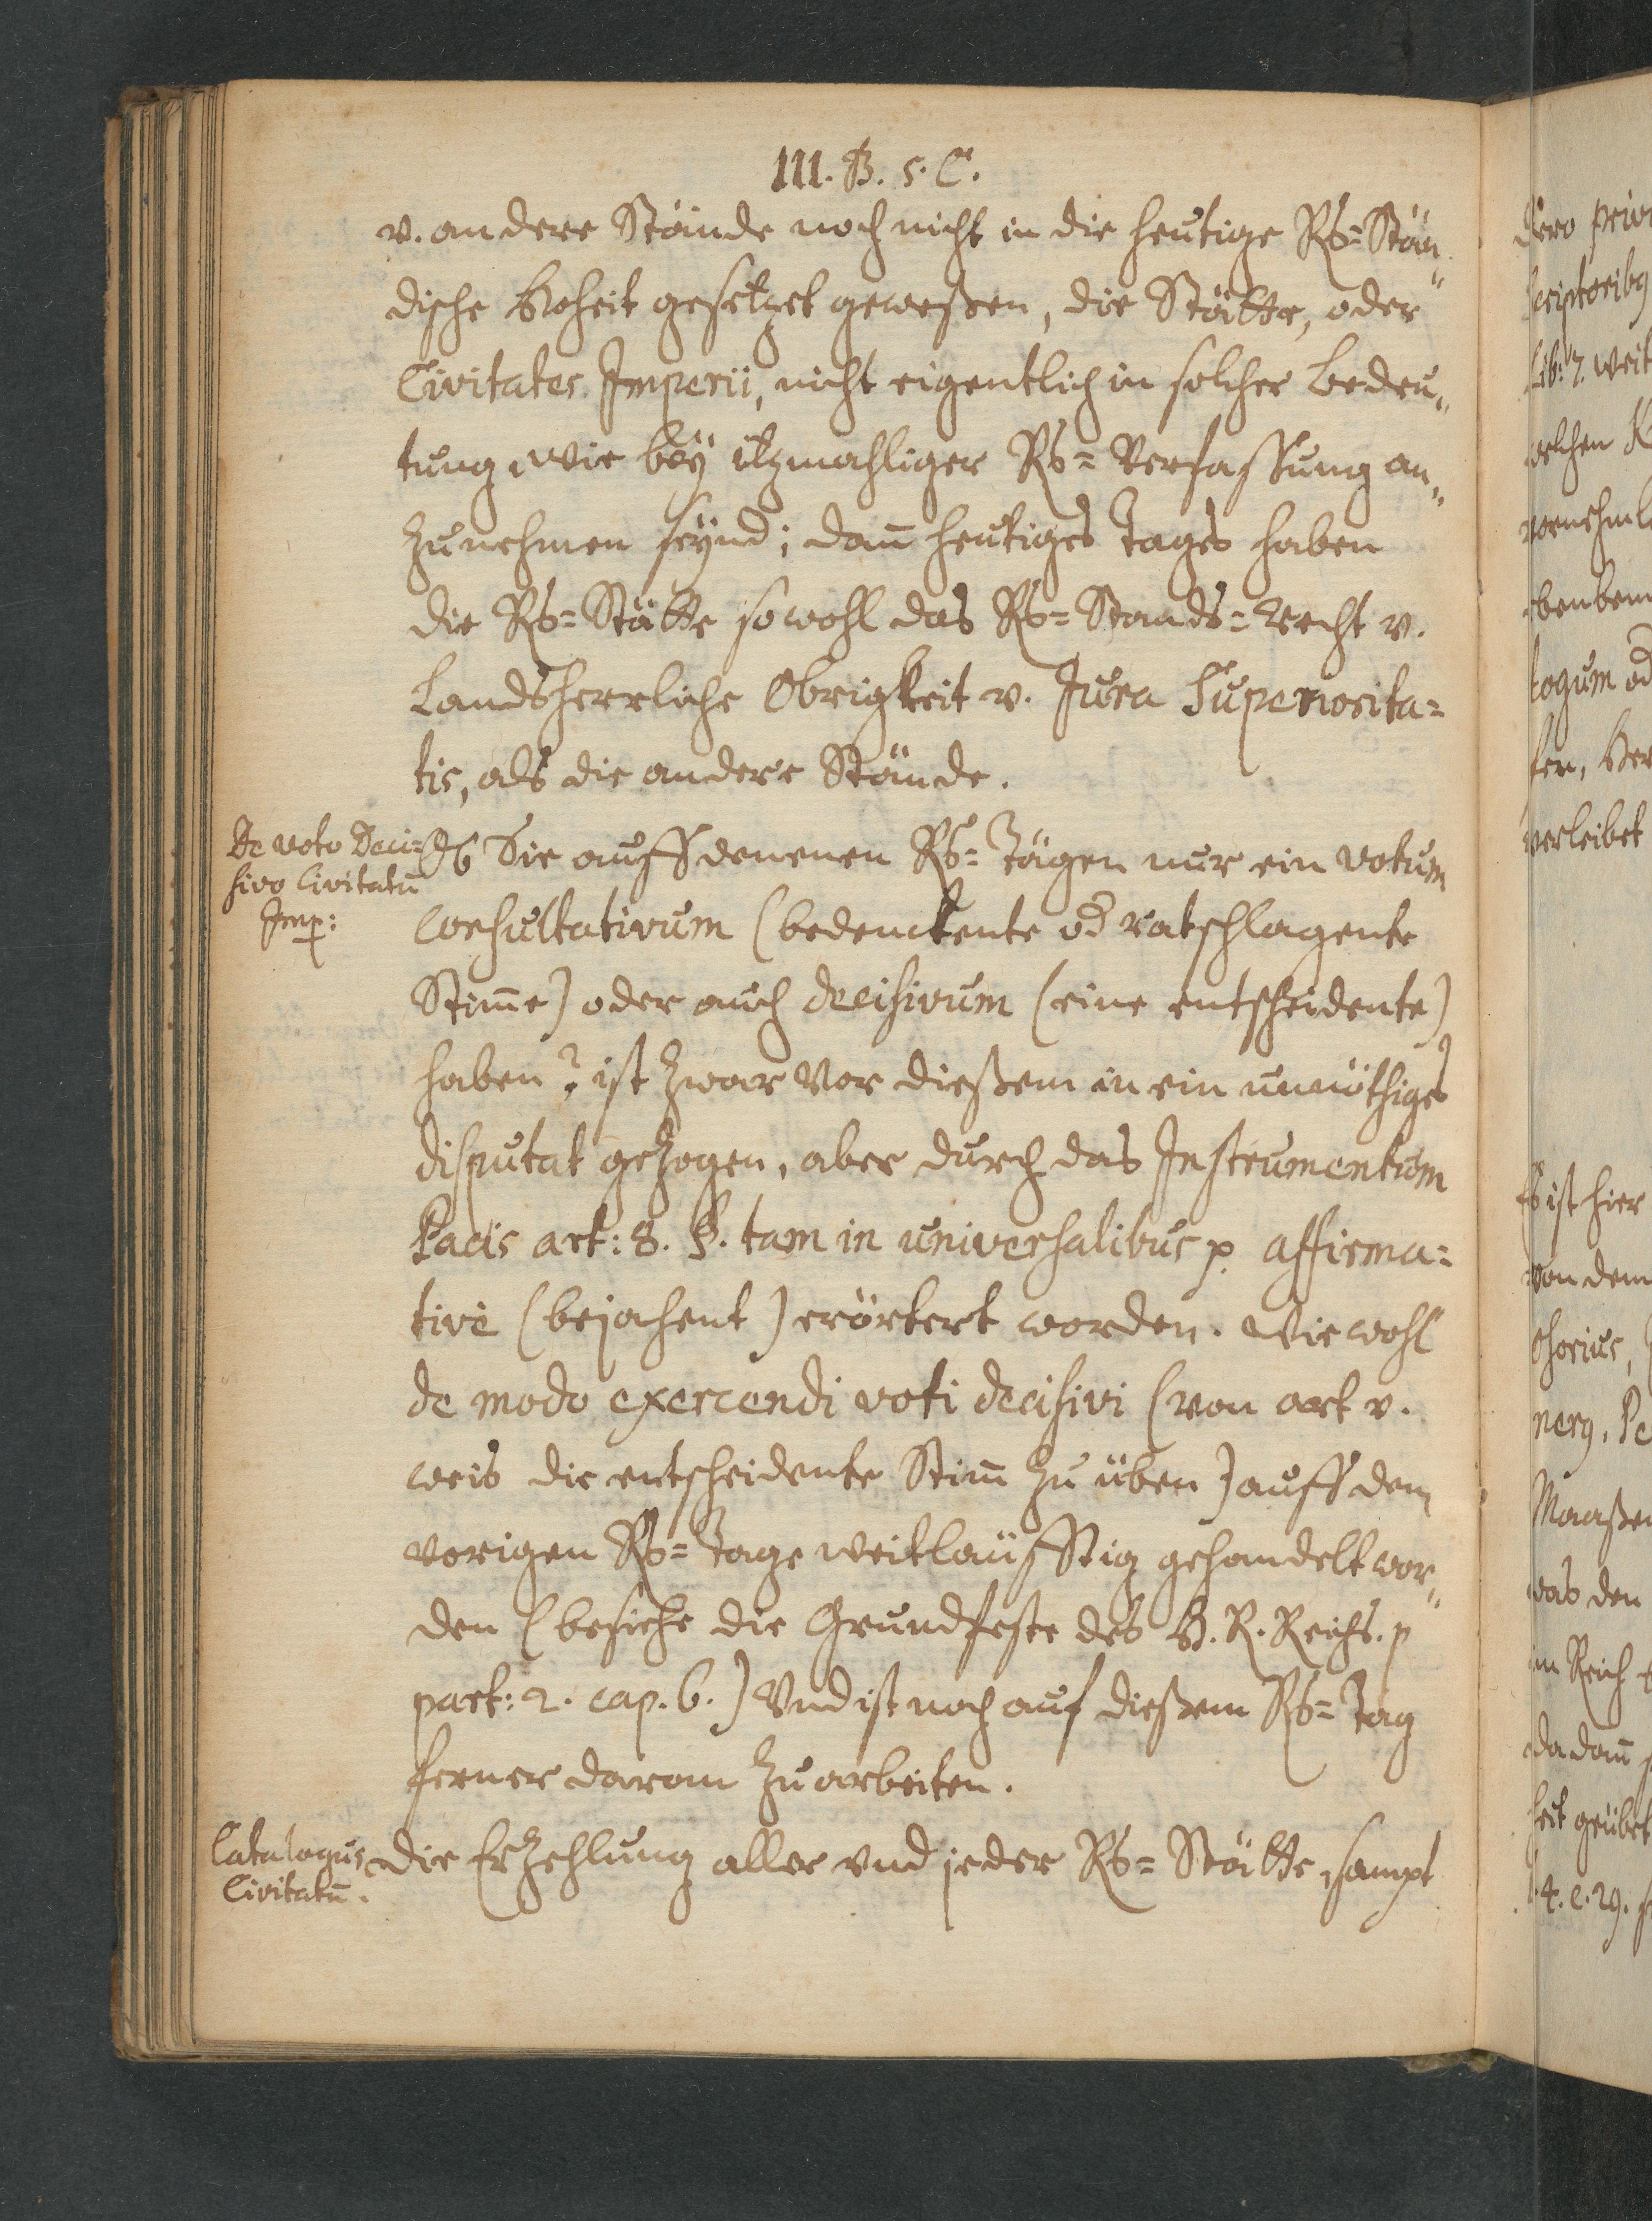 III. B. 5. C.
v. andere Stände noch nicht in die heutige Rs=Stän„
dische Hoheit gesetzet geweßen, die Stätte, oder
Civitates Imperii, nicht eigentlich in solcher bedeu„
tung wie beÿ itzmahliger Rs=Verfassung an„
zunehmen seÿnd; dan̄ heutiges Tages haben
die Rs=Stätte sowohl das Rs=Stands=recht v.
Landsherrliche Obrigkeit v. Jura Superiorita=
tis, als die andere Stände.
De voto Deci=
sivo Civitatū
Imp:
Ob Sie auff denenen Rs=Tägen nur ein votum
consultativum (bedenckente od ratschlagente
Stim̄e) oder auch decisivum (eine entscheidente)
haben? ist zwar vor dießem in ein unnöthiges
disputat gezogen, aber durch das Instrumentum
Pacis art: 8. §. tam in universalibus p. affirma=
tivè (bejahent) erörtert worden. Wiewohl
de modo exercendi voti decisivi (von art v.
weis die entscheidente Stim̄ zu üben) auff dem
vorigen Rs=Tage weitläufftig gehandelt wor„
den (besiehe die Grundfeste des H. R. Reichs. p
part: 2. cap. 6.) Vnd ist noch auf dießem Rs=Tag
ferner daran zu arbeiten.
Catalogus
Civitatū.
Die Erzehlung aller vnd jeder Rs=Stätte, sampt
dero
lib: 7. weit
welchen
vornehml
logum od
verleibet
ist hier
von dem
Maaßen
was den
im Reich
da dan̄
geübet
4. c. 29.